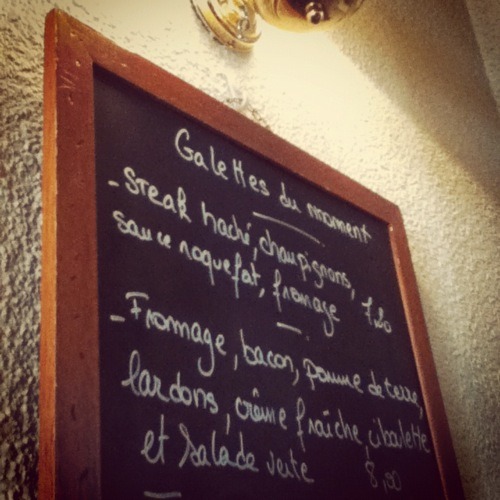 Galettes du moment
- Steak haché, champignons,
sauce roquefort, fromage 7,20
- Fromage, bacon, pomme de terre,
lardons, crème fraîche, ciboulette
et salade verte 8,90